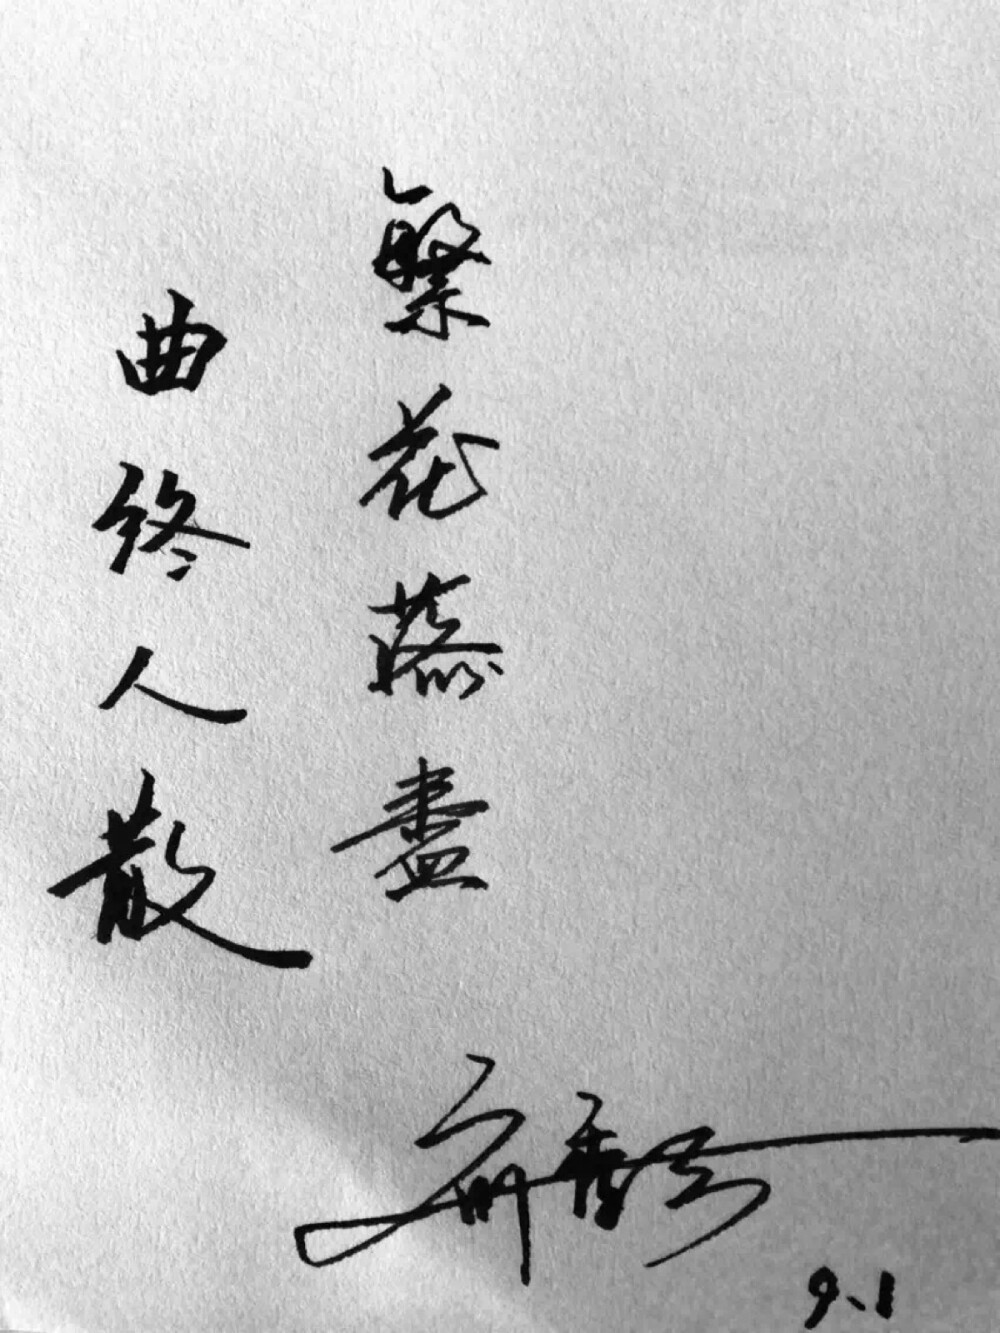 繁花盡
曲终人散
9.1